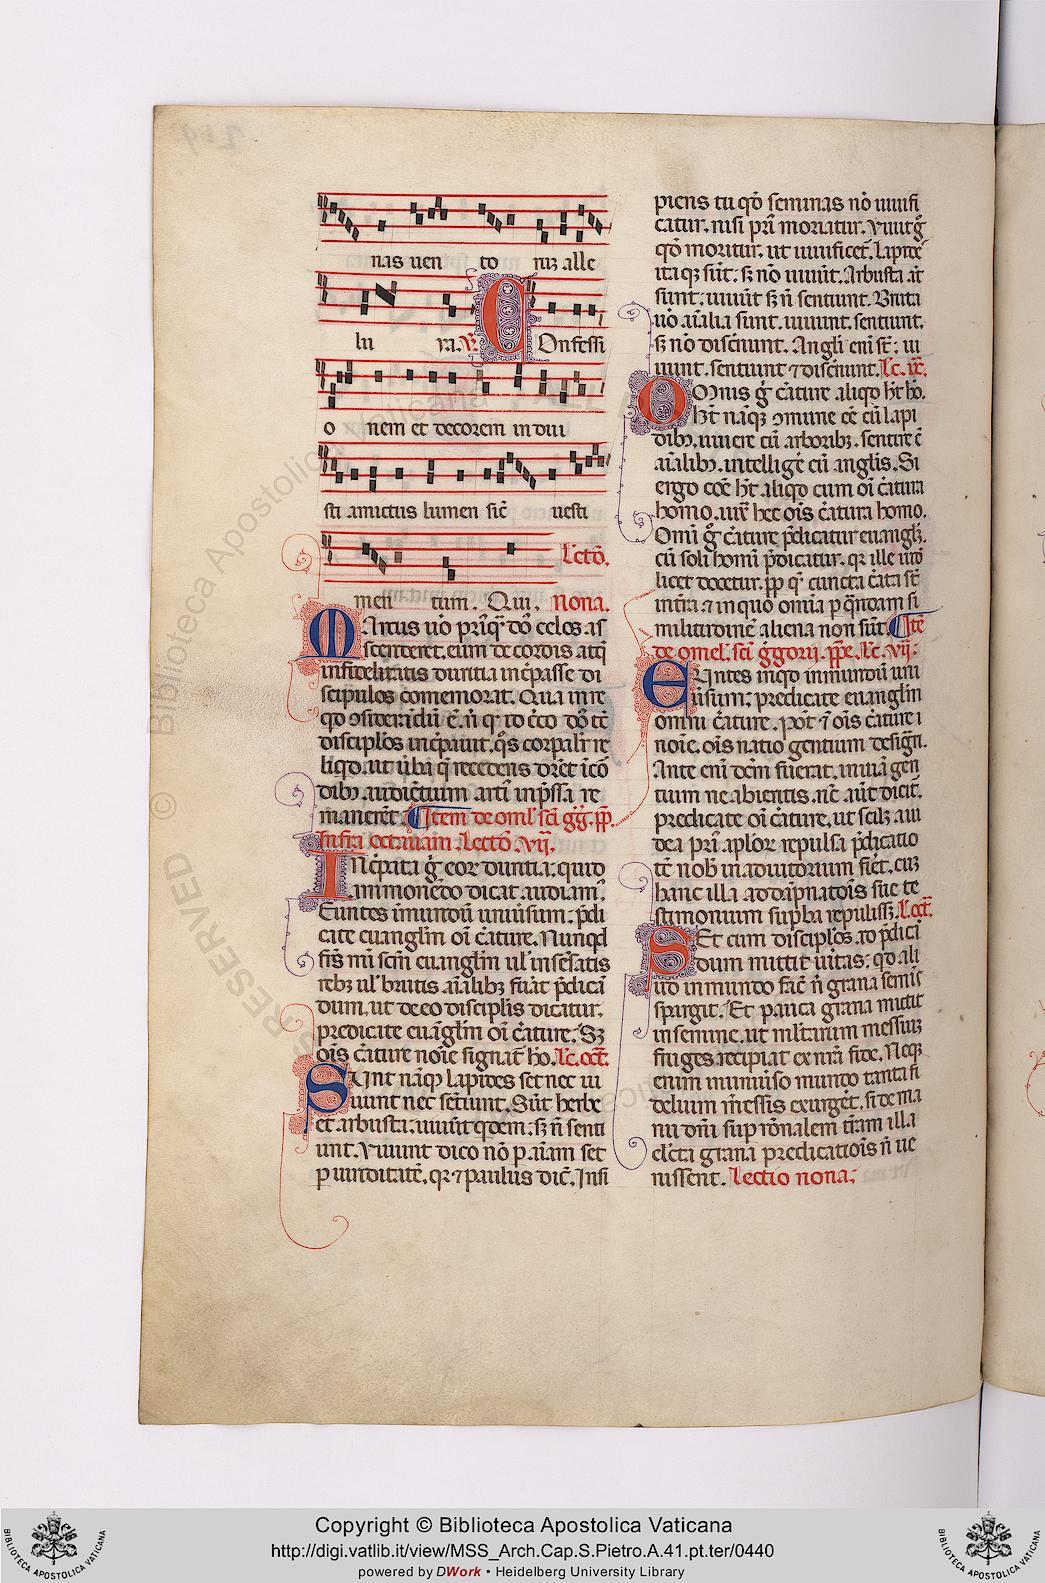 nas uen to rū alle
lu ya. ℣. Confessi
o nem et decorem indui
sti amictus lumen sic̄ uesti
men tum. Qui. Lcō.
nona.
Marcus uō priꝰqͣ dō celos as
scenderet. eum de cordis atqꝫ
infidelitatis duritia īcrepasse di
scipulos comemorat. Qua in re
qd ꝯsiderandū ē. n̄ qꝛ iō
discipl'os īcrepauit. qͦs corpalr̄ re
liqd. ut ūba q̄ recedens diceret ī cō
dibꝫ audientium artī īpssa re
maneret. Item de oml̄. scī gḡ. pp̄.
Infra octauam. Lectō. vij.
Increpata g̊ eoꝝ duritia: quid
āmonendo dicat audiam̄.
Euntes ī mundū uniuersum: p̄di
cate euanglm̄ oī c̄ature. Nunqd
frēs mī scm̄ euanglm̄ ul' insēsatis
rebꝫ ul' brutis aīalibꝫ fuāt p̄dicā
dum. ut de eo discipl'is dicatur:
predicate euāglm̄ oī c̄ature. Sꝫ
oīs c̄ature noīe signat̄ hō. Lc̄. oct̄.
Sunt nāqꝫ lapides set nec ui
uunt nec sētiunt. Sūt herbe
et arbusta: uiuūt qdem: sꝫ n̄ senti
unt. Viuunt dico nō p aīam set
p uiriditatē. qꝛ ⁊ paulus dic̄. Insi
piens tu qd̄ seminas nō uiuifi
catur. nisi pri᷒ moriatur. Viuit g̊
qd̄ moritur. ut uiuificet᷑. Lapides
itaqꝫ sūt: sꝫ nō uiuūt. Arbusta aūt
sunt. uiuūt sꝫ n̄ sentiunt. Bruta
uō aīalia sunt. uiuunt. sentiunt.
sꝫ nō discernunt. Angli enī st̄: ui
uunt. sentiunt ⁊ discernunt. Lc̄. ix̄.
Omnis g̊ c̄ature aliqd h̄t hō.
H̄t nāqꝫ ꝯmune eē cū lapi
dibꝫ. uiuere cū arboribꝫ. sentire c̄
aīalibꝫ. intellige cū anglis. Si
ergo cōe h̄t aliqd cum oī c̄atura
homo. iux̄ hec oīs c̄atura homo.
Omī g̊ c̄ature p̄dicatur euanglꝫ.
cū soli homī p̄dicatur. qꝛ ille uidꝫ
licet docetur. pp qͣ cuncta c̄ata st̄
in tr̄a. ⁊ in quo omīa p qͣndam si
militudinē aliena non sūt. Itē
de omel̄. scī g̊gorii. pp̄e. Lc̄. vij.
Euntes inqd in mundū uni
uersum: predicate euanglm̄
omni c̄ature. Pōt ⁊ oīs c̄ature ī
noīe. oīs natio gentium design̄.
Ante enī dcm̄ fuerat. in uiā gen
tium ne abieritis. nc̄ aūt dicit̄.
predicate oī c̄ature. ut scilꝫ a iu
dea pri᷒ aplor̄ repulsa p̄dicatio
tc̄ nob̄ in adiutorium fiet᷑. cuꝫ
hanc illa ad dāpnatōis sue te
stimonium supba repulissꝫ. Lc̄. oct̄.
Set cum discipl'os ad p̄dicā
dum mittit uītas: qd ali
ud in mundo fac̄ n̄ grana semīs
spargit. Et pauca grana mittit
in semine. ut mltarum messiuꝫ
fruges recipiat ex nrā fide. Neqꝫ
enim in uniuso mundo tanta fi
delium messis exurget̄. si de ma
nu dnī sup rōnalem tr̄am illa
elcta grana predicatiōis n̄ ue
nissent. Lectio nona:
Copyright © Biblioteca Apostolica Vaticana
http://digi.vatlib.it/view/MSS_Arch.Cap.S.Pietro.A.41.pt.ter/0440
powered by DWork • Heidelberg University Library